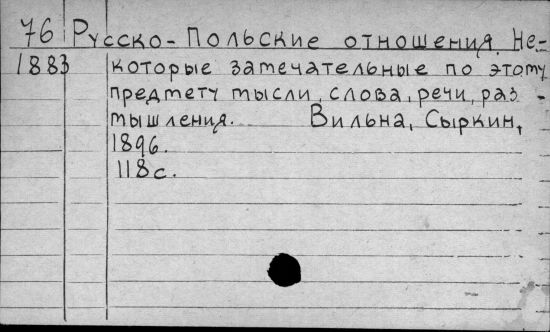 76 Русско-Польские отношения. Не-
1883 которые замечательные по этому
предмету мысли, слова, речи, раз-
мышления. Вильна, Сыркин,
1896.
118с.